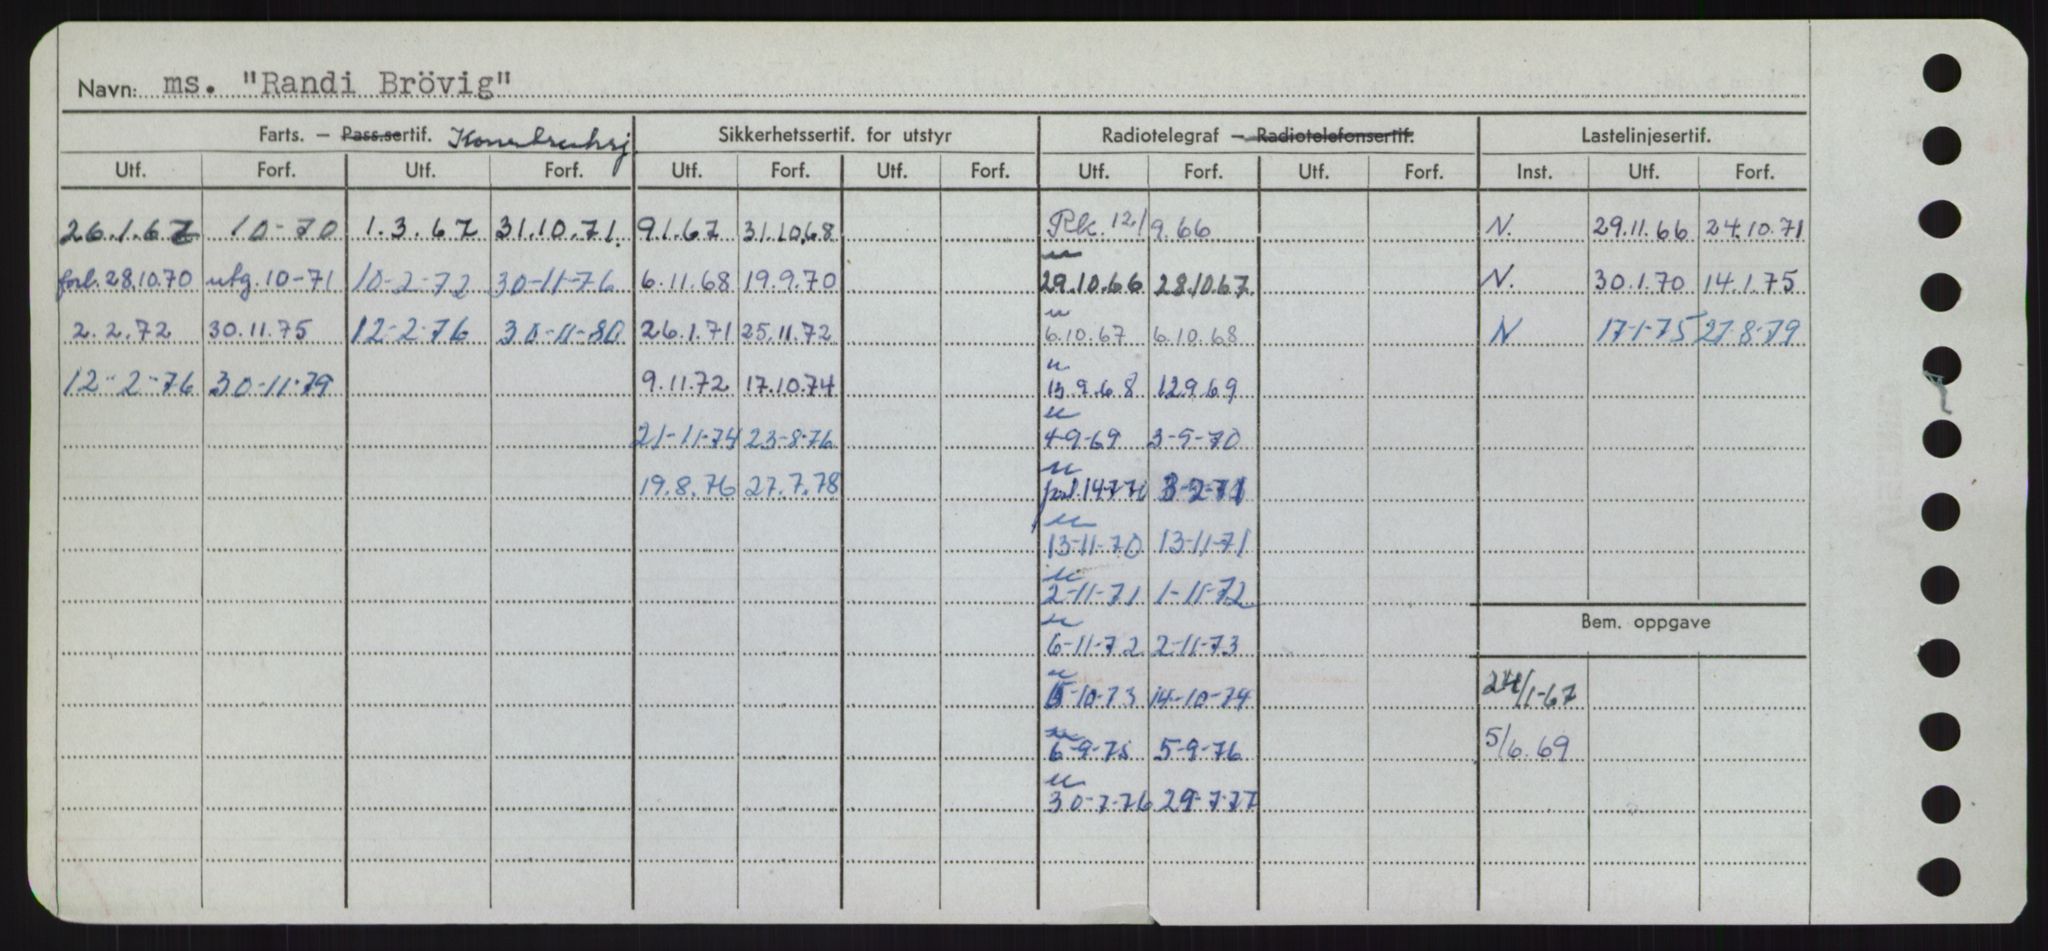 Navn: ms. "Randi Brövig"
Farts. – Pass.sertif. Sikkerhetssertif. for utstyr Radiotelegraf – Radiotelefonsertif. Lastelinjesertif.
Utf. Forf. Utf. Forf. Utf. Forf. Utf. Forf. Utf. Forf. Utf. Forf. Inst. Utf. Forf.
26.1.67 10-70 1.3.67 31.10.71. 9.1.67 31.10.68 Rk. 12/9.66 N. 29.11.66 24.10.71
forl. 28.10.70 utg. 10-71 10-2-72 30-11-76 6.11.68 19.9.70 " 29.10.66 28.10.67. N. 30.1.70 14.1.75
2.2.72 30.11.75 12-2-76 30-11-80 26.1.71 25.11.72 " 6.10.67 6.10.68 N 17-1-75 27-8-79
12-2-76 30-11-79 9.11.72 17.10.74 " 13.9.68 12.9.69
21-11-74 23-8-76 " 4-9-69 3-9-70
19.8.76 27.7.78 " 3-2-71
" 13-11-70 13-11-71
" 2-11-71 1-11-72
Bem. oppgave
" 6-11-72 2-11-73
" 15-10-73 14-10-74 24/1-67
" 6-9-75 5-9-76 5/6.69
" 30-7-76 29-7-77